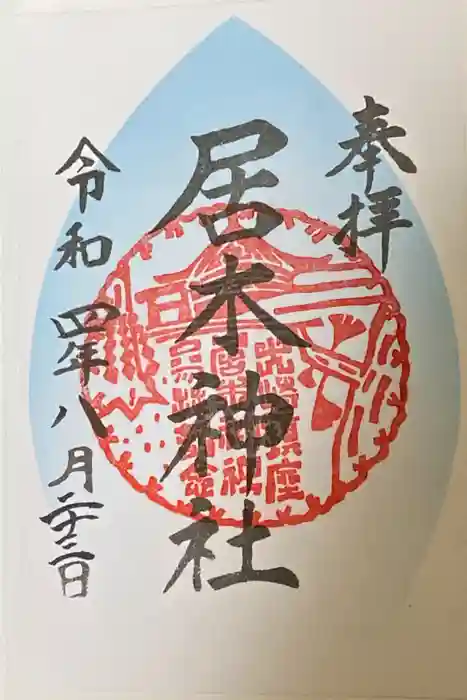 奉拝
居木神社
令和四年八月二十三日